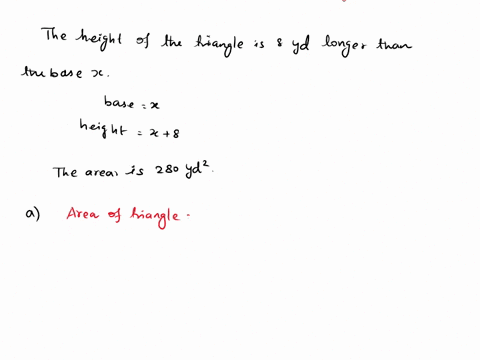 The height of the triangle is 8 yd longer than
the base x.
base = x
height = x + 8
The area is 280 yd².
a) Area of triangle -